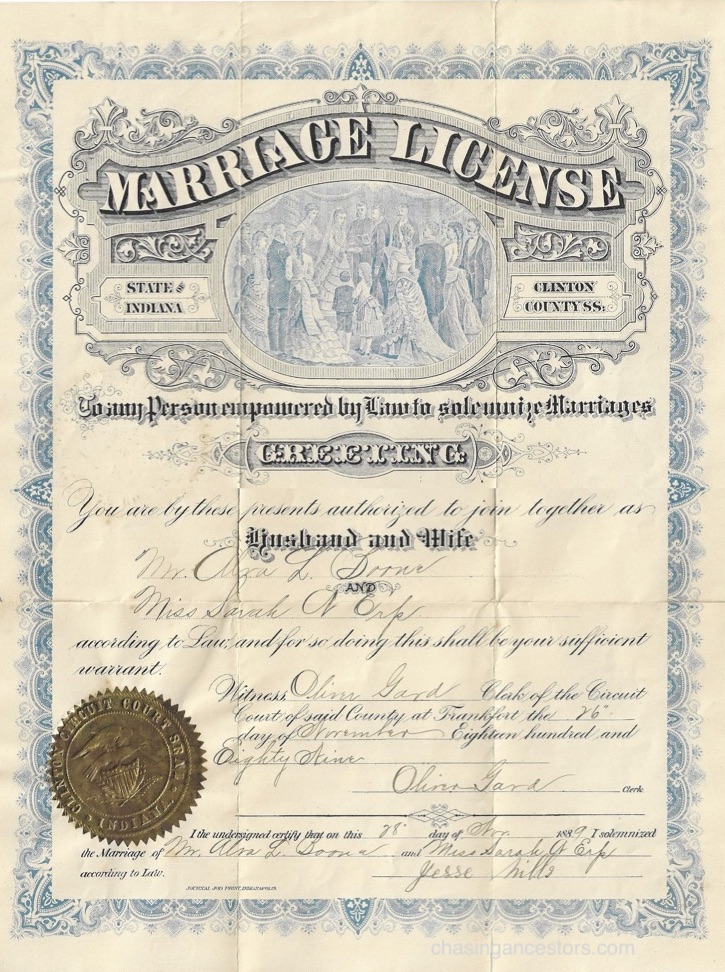 MARRIAGE LICENSE
STATE OF
INDIANA
CLINTON
COUNTY SS:
To any Person empowered by Law to solemnize Marriages
GREETING:
You are by these presents authorized to join together as
Husband and Wife
Mr. Alva L. Boone
AND
Miss Sarah A Erp
according to Law, and for so doing this shall be your sufficient
warrant.
Witness, Oliver Gard Clerk of the Circuit
Court of said County at Frankfort the 26"
day of November Eighteen hundred and
Eighty Nine
Oliver Gard Clerk
CLINTON CIRCUIT COURT SEAL
INDIANA
I the undersigned certify that on this 28" day of Nov. 1889 I solemnized
the Marriage of Mr. Alva L. Boone and Miss Sarah A Erp
according to Law. Jesse Mills
JOURNAL JOB PRINT, INDIANAPOLIS.
chasingancestors.com